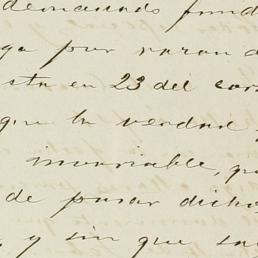 demandado fund
ga por razon d
sta en 23 del cor
que la verdad
invariable, qu
de pasar dicho
, y sin que sa